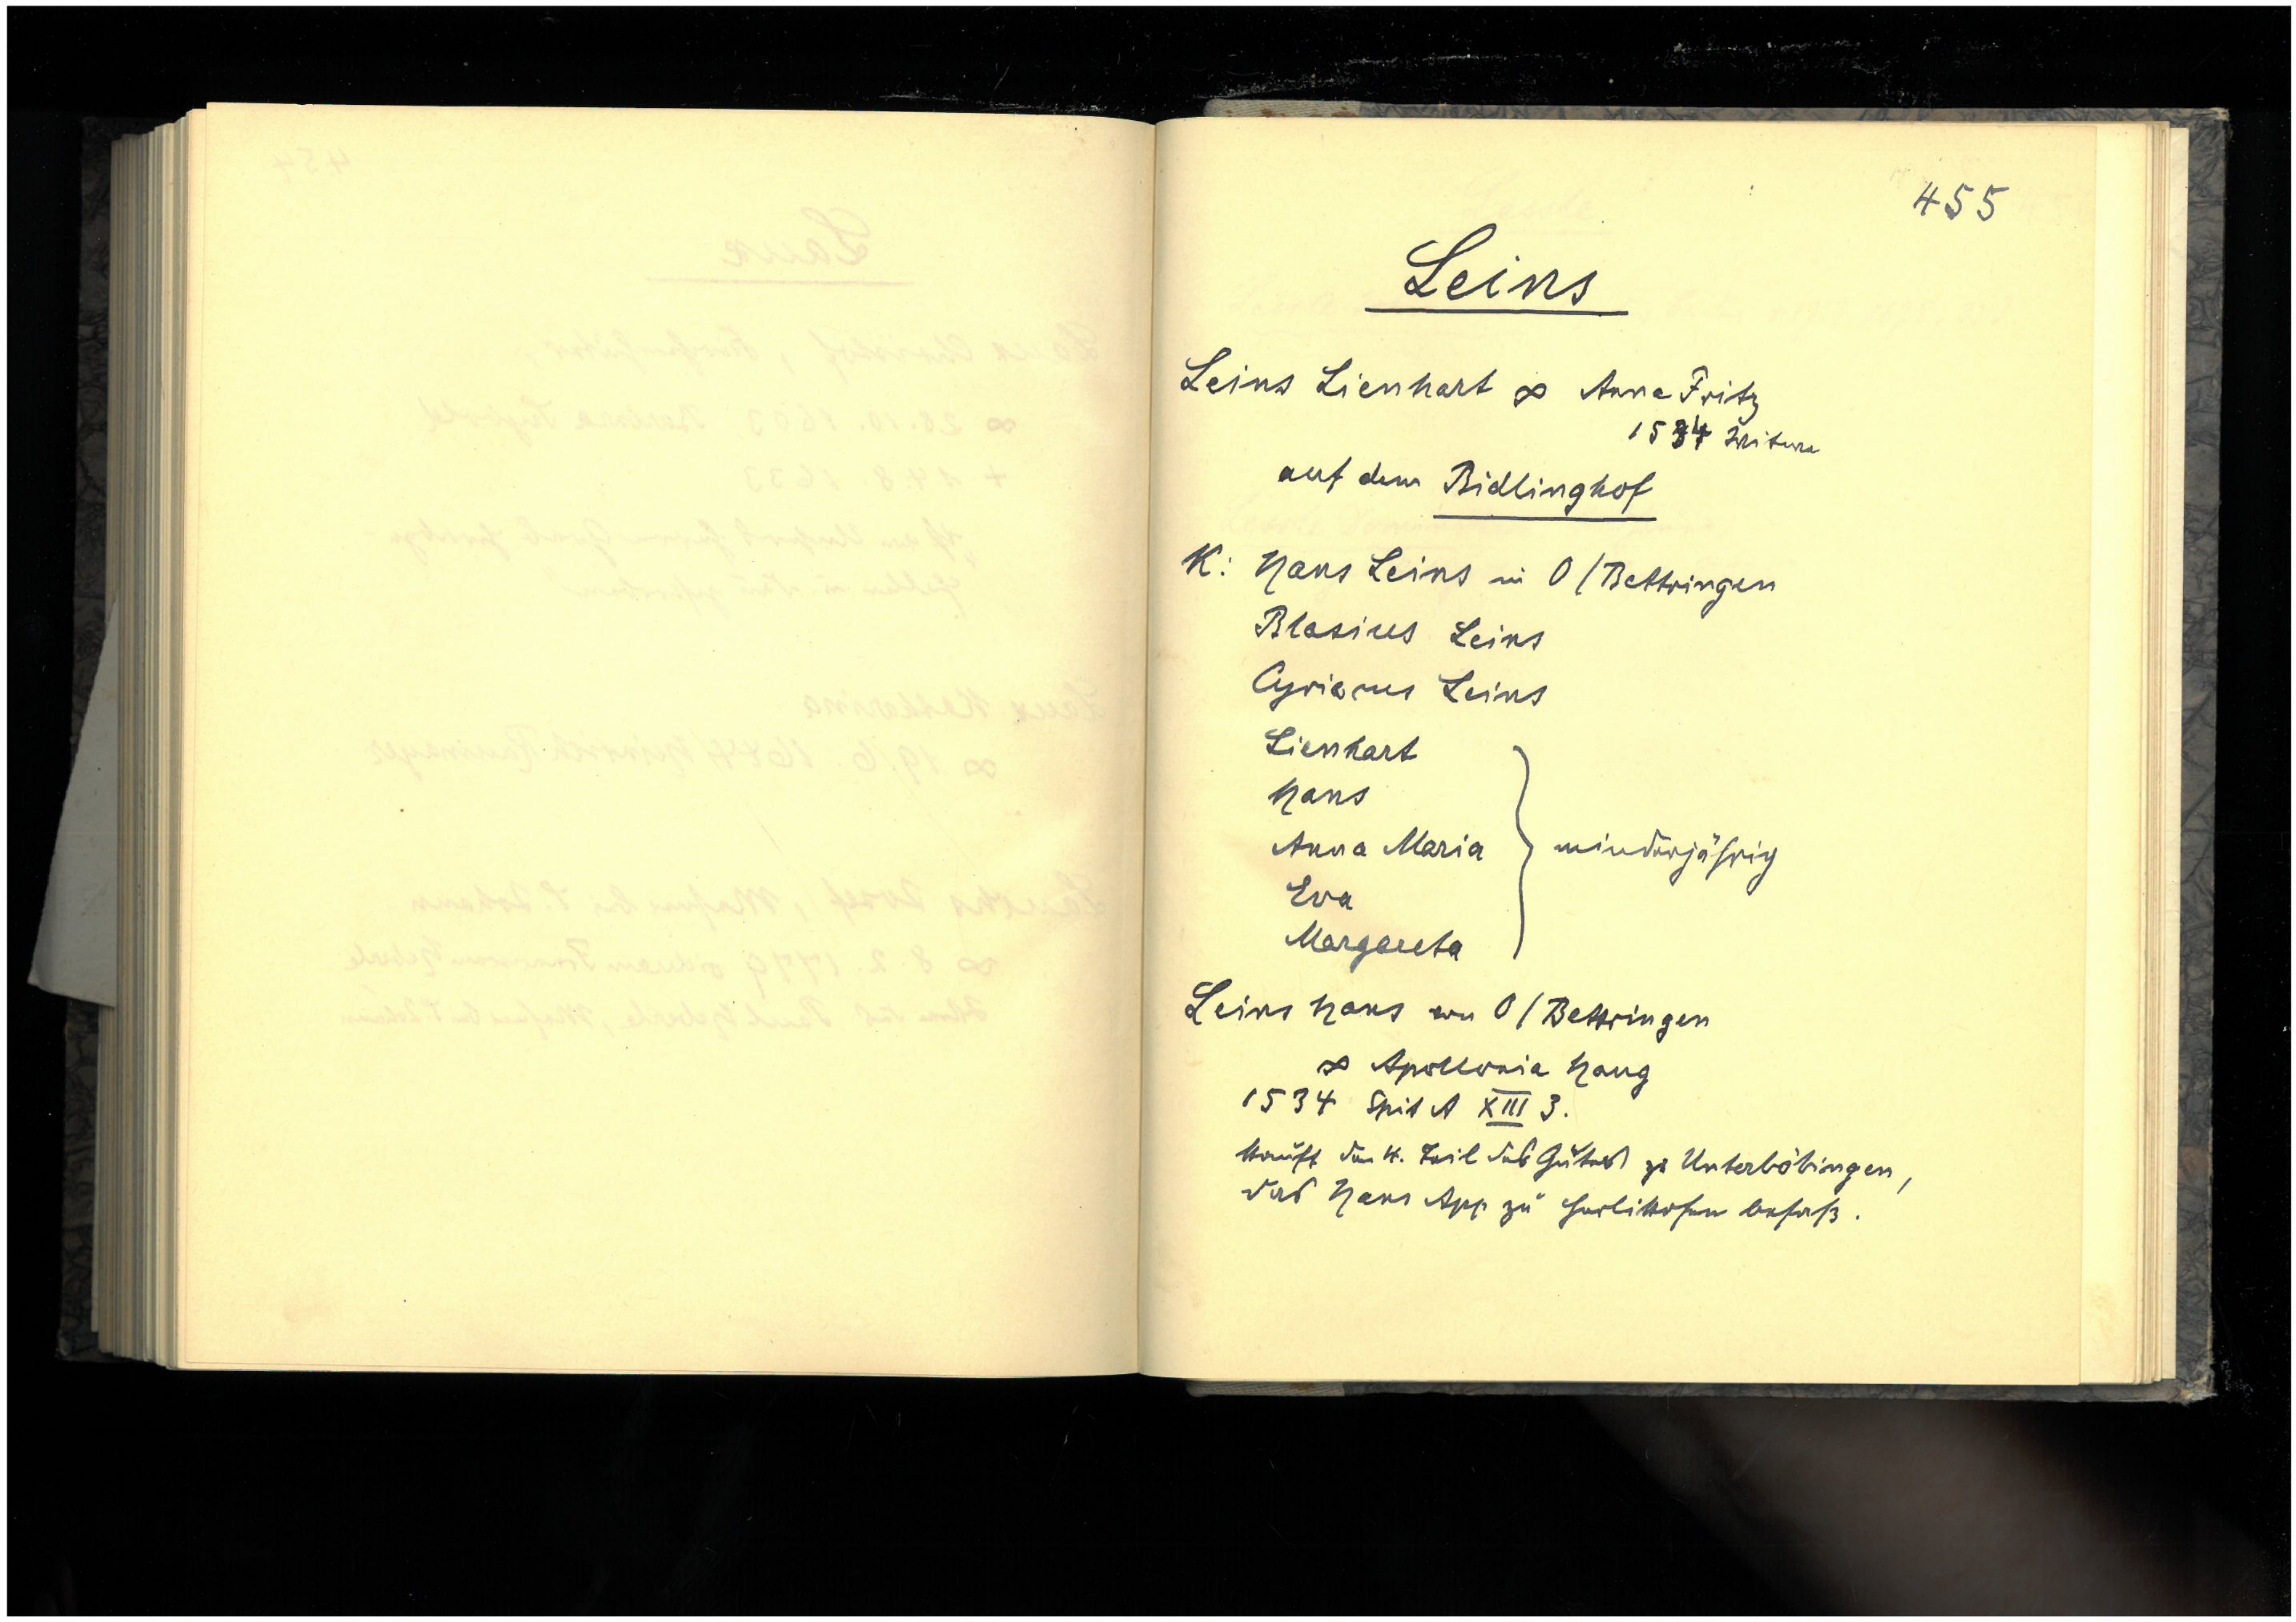 455
Leins
Leins Lienhart ∞ Anna Fritz
1534 Witwe
auf dem Bidlinghof
K: Hans Leins in O/Bettringen
Blasius Leins
Cyriacus Leins
Lienhart
Hans
Anna Maria } minderjährig
Eva
Margareta
Leins Hans von O/Bettringen
∞ Apollonia Haug
1534 Spit A XIII 3.
kauft den 4. Teil des Gutes zu Unterböbingen,
das Hans App zu Herlikofen besaß.